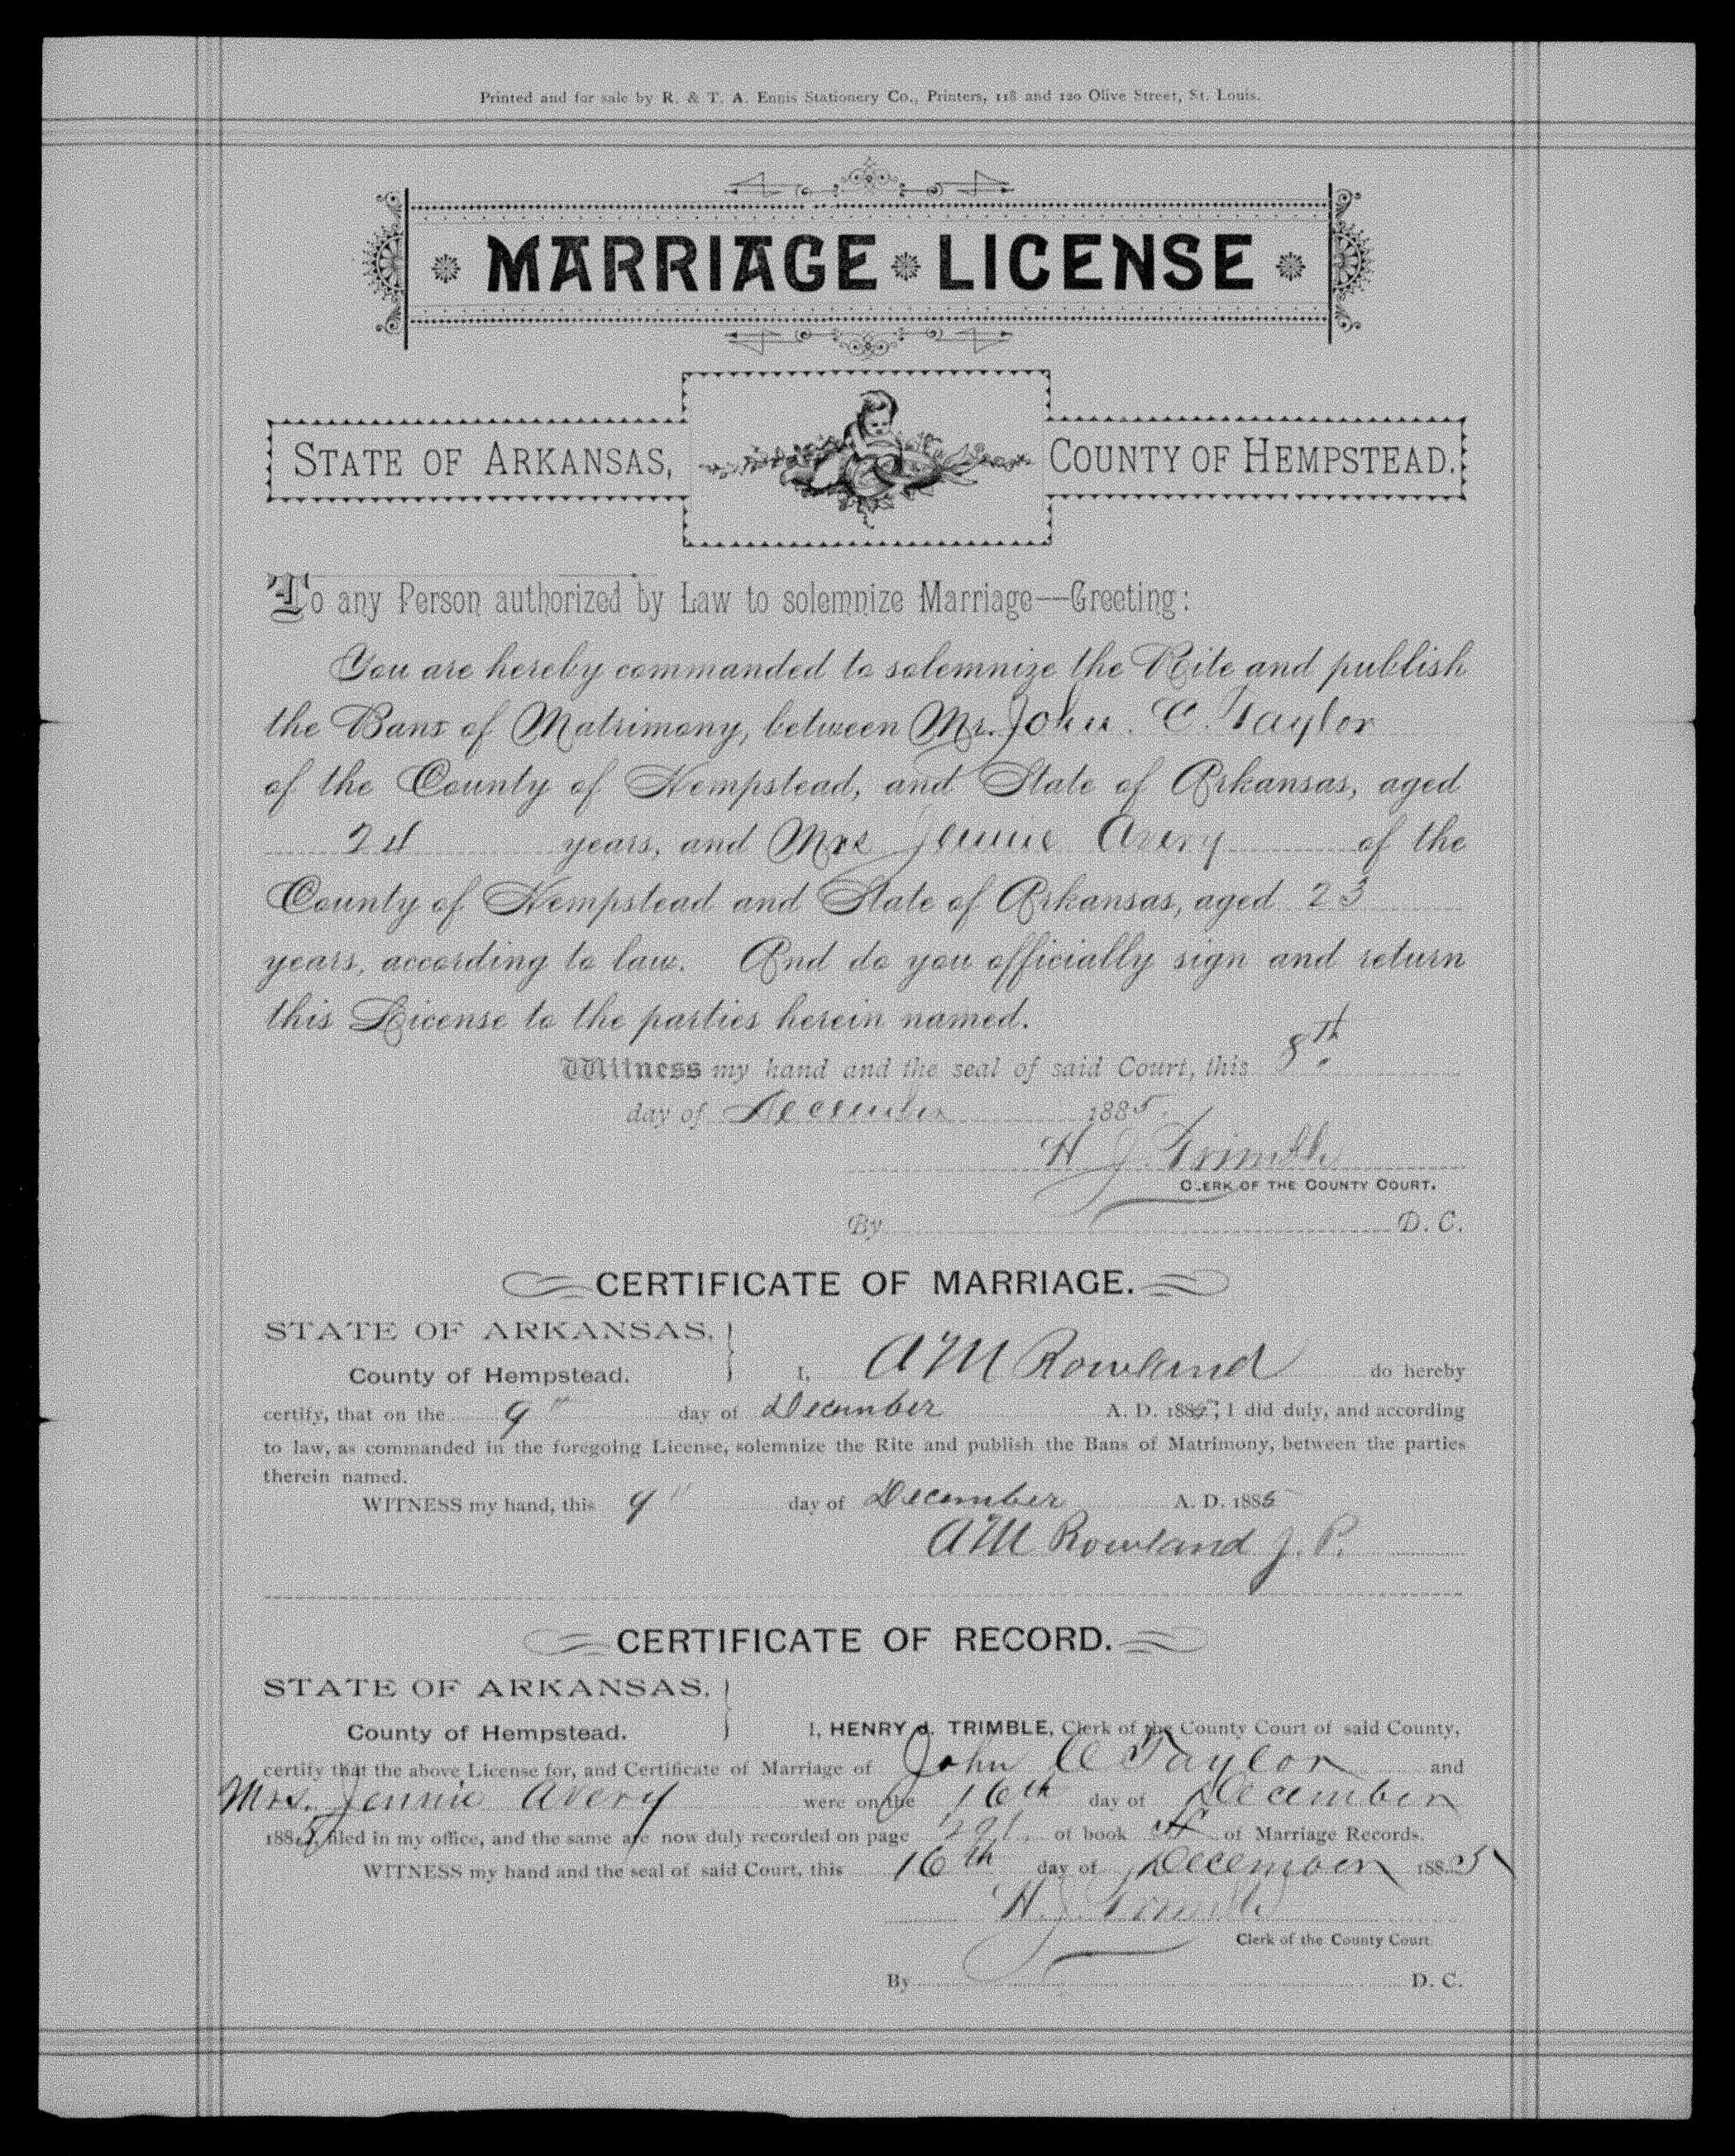 Printed and for sale by R. & T. A. Ennis Stationery Co., Printers, 118 and 120 Olive Street, St. Louis.
MARRIAGE LICENSE
STATE OF ARKANSAS, COUNTY OF HEMPSTEAD.
To any Person authorized by Law to solemnize Marriage—Greeting:
You are hereby commanded to solemnize the Rite and publish
the Bans of Matrimony, between Mr. John. C. Taylor
of the County of Hempstead, and State of Arkansas, aged
24 years, and Mrs Jennie Avery of the
County of Hempstead and State of Arkansas, aged 23
years, according to law. And do you officially sign and return
this License to the parties herein named.
Witness my hand and the seal of said Court, this 8th
day of December 1885.
H J Trimble
CLERK OF THE COUNTY COURT.
By D. C.
CERTIFICATE OF MARRIAGE.
STATE OF ARKANSAS,
County of Hempstead. } I, A M Rowland do hereby
certify, that on the 9" day of December A. D. 1885, I did duly, and according
to law, as commanded in the foregoing License, solemnize the Rite and publish the Bans of Matrimony, between the parties
therein named.
WITNESS my hand, this 9" day of December A. D. 1885
A M Rowland J. P.
CERTIFICATE OF RECORD.
STATE OF ARKANSAS,
County of Hempstead. } I, HENRY J. TRIMBLE, Clerk of the County Court of said County,
certify that the above License for, and Certificate of Marriage of John C Taylor and
Mrs. Jennie Avery were on the 16th day of December
1885, filed in my office, and the same are now duly recorded on page 291. of book of Marriage Records.
WITNESS my hand and the seal of said Court, this 16th day of December 1885
H. J. Trimble
Clerk of the County Court
By D. C.